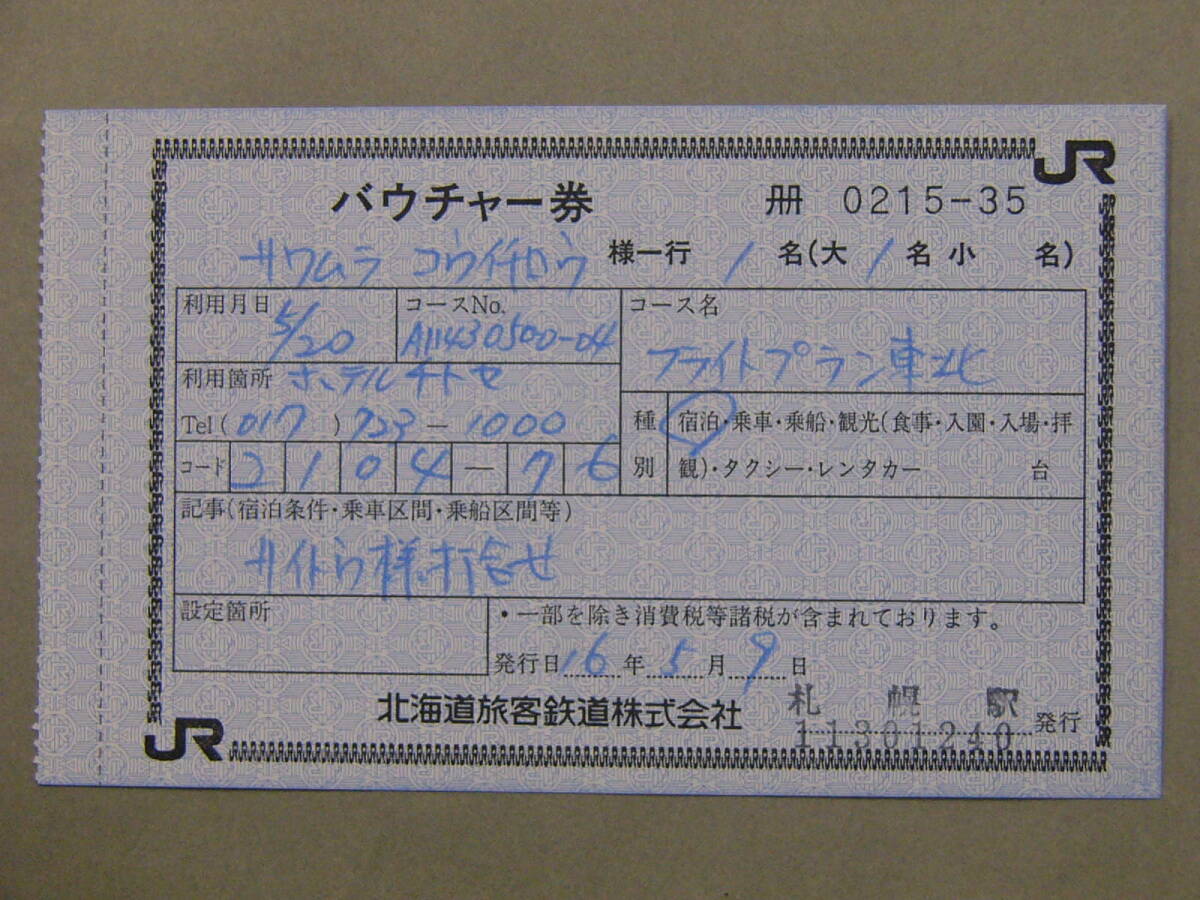 JR
バウチャー券 冊 0215-35
サワムラ コウイチロウ 様一行 1 名(大 1 名 小 名)
利用月日 5/20 コースNo. A11430500-04 コース名
フライトプラン東北
利用箇所 ホテルチトセ
Tel (017) 723-1000
種別 宿泊・乗車・乗船・観光(食事・入園・入場・拝
観)・タクシー・レンタカー 台
コード 2104-76
記事(宿泊条件・乗車区間・乗船区間等)
サイトウ様打合せ
設定箇所 ・一部を除き消費税等諸税が含まれております。
発行日 16 年 5 月 9 日
北海道旅客鉄道株式会社 札幌駅 発行
11301240
JR